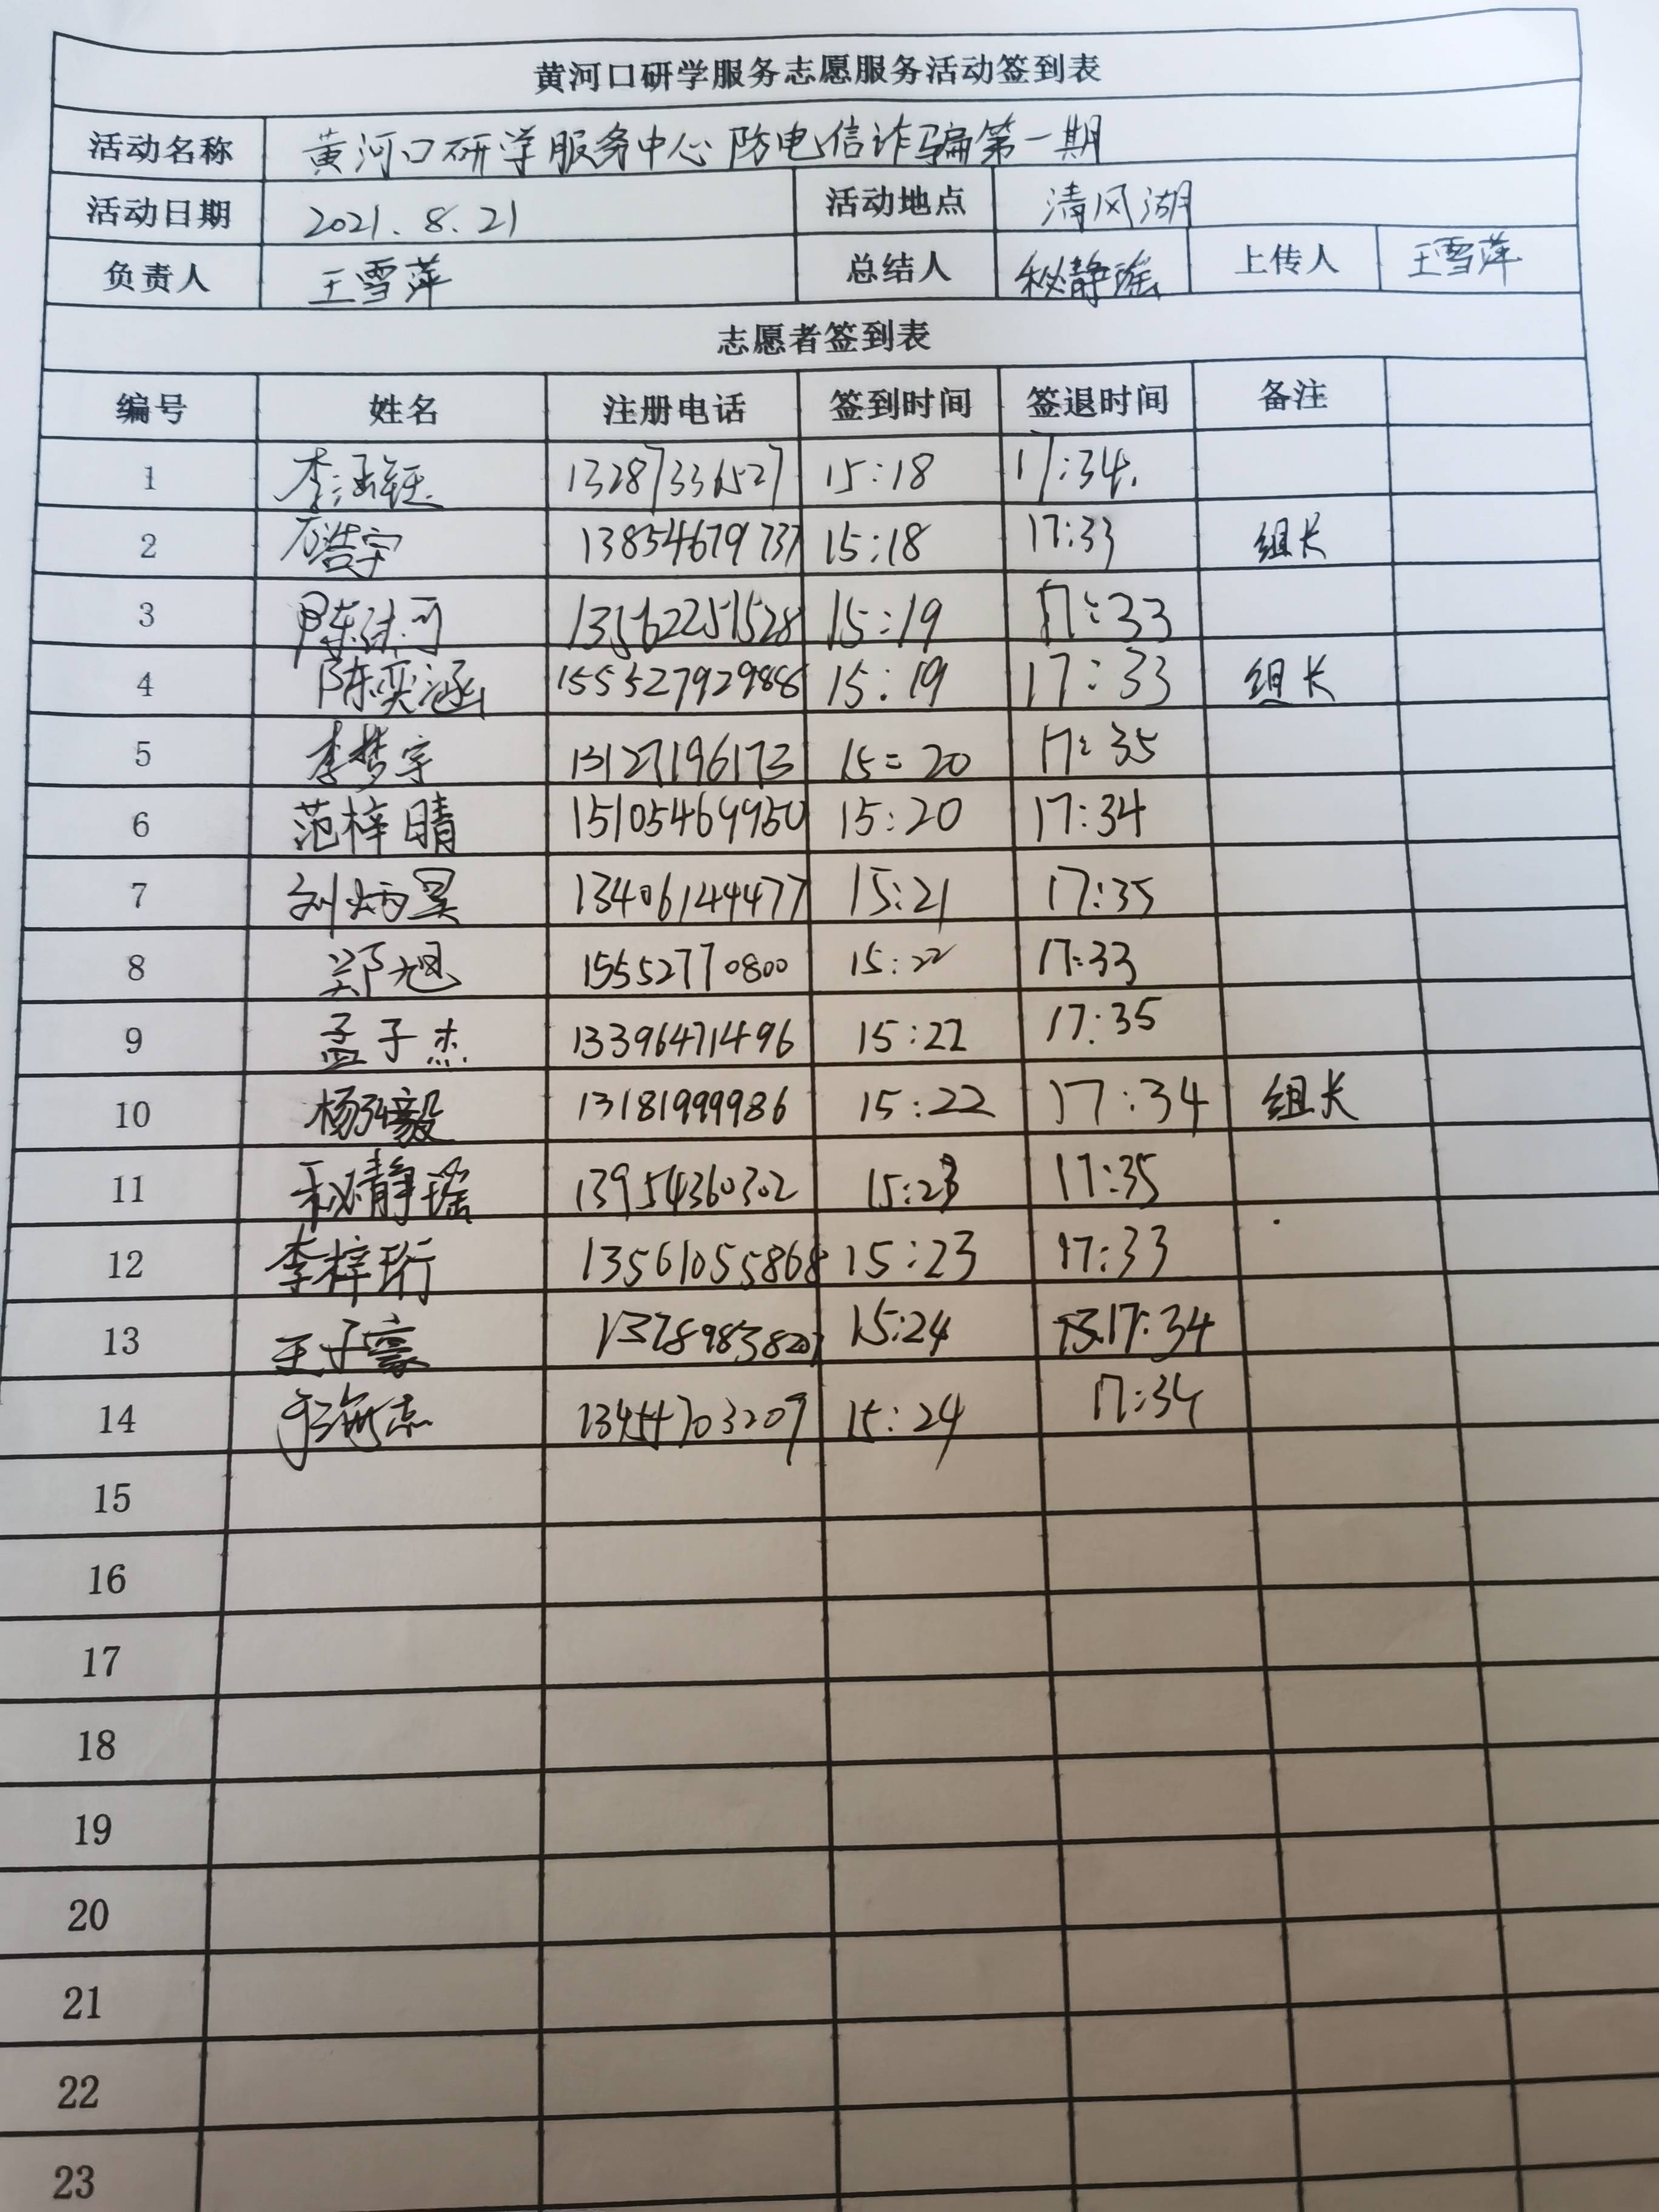 黄河口研学服务志愿服务活动签到表
活动名称 黄河口研学服务中心防电信诈骗第一期
活动日期 2021.8.21 活动地点 清风湖
负责人 王雪萍 总结人 秘静瑶 上传人 王雪萍
志愿者签到表
编号 姓名 注册电话 签到时间 签退时间 备注
1 15:18 17:34
2 石浩宇 13854679737 15:18 17:33 组长
3 13562251528 15:19 17:33
4 陈奕涵 155527929886 15:19 17:33 组长
5 李梦宇 13127196173 15:20 17:35
6 范梓晴 15105469950 15:20 17:34
7 刘炳昊 13406144477 15:21 17:35
8 郑旭 15552770800 15:22 17:33
9 孟子杰 13396471496 15:22 17:35
10 杨弘毅 13181999986 15:22 17:34 组长
11 秘静瑶 13954360302 15:23 17:35
12 李梓珩 13561055868 15:23 17:33
13 王子豪 15:24 17:34
14 15:24 17:34
15
16
17
18
19
20
21
22
23